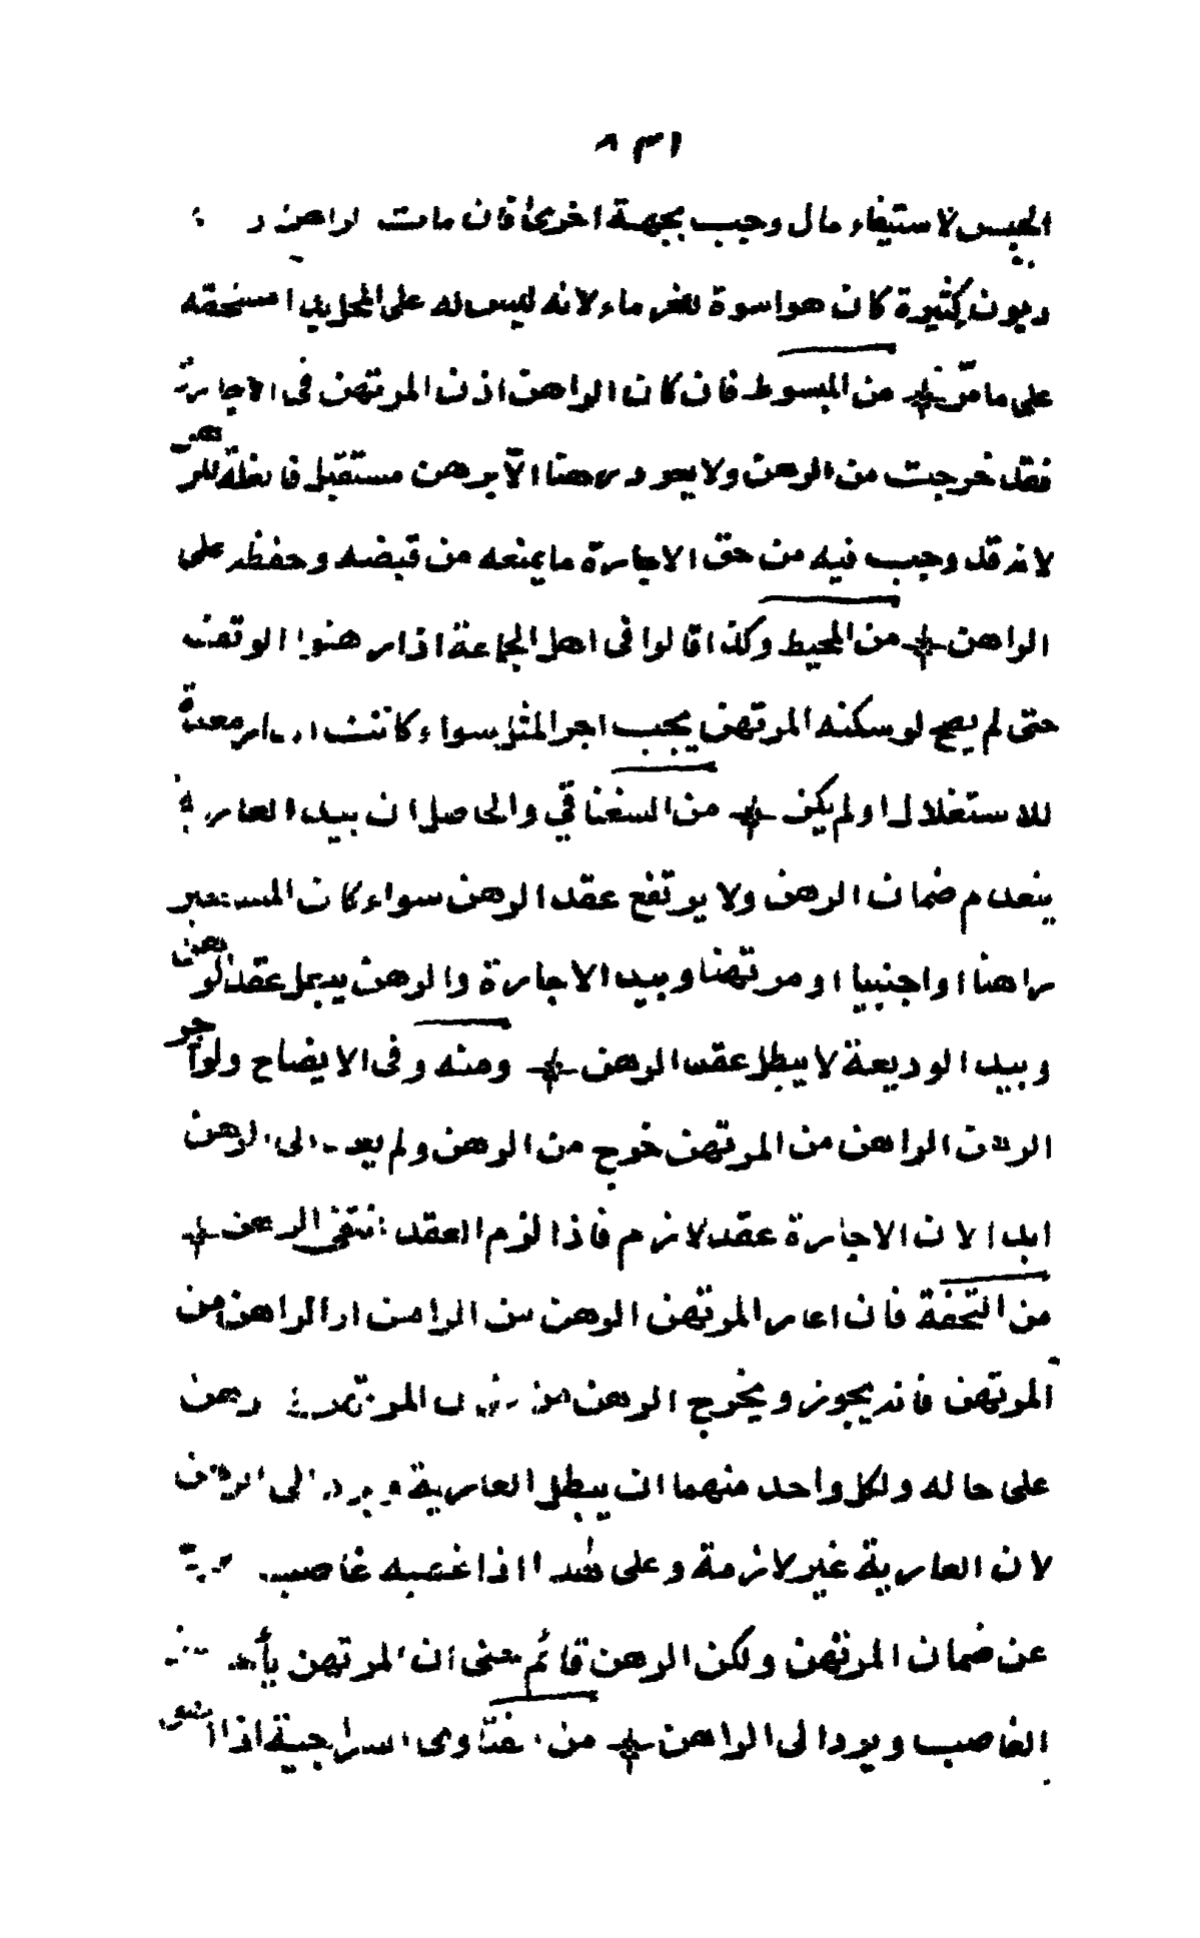 ٨٣١
الحبس لاستيفاء مال وجب بجهة اخرى فان مات الراهن و
ديون كثيرة كان هو اسوة للغرماء لانه ليس له على المحل يد استحقه
على ما مرّ من المبسوط فان كان الراهن اذن المرتهن فى الاجارة
فقد خرجت من الرهن ولا يعود رهنا الّا برهن مستقبل فالغلة للراهن
لانه قد وجب فيه من حق الاجارة ما يمنعه من قبضه وحفظه على
الراهن من المحيط وكذا قالوا فى اهل الجماعة اذا رهنوا الوقف
حتى لم يصح لو سكنه المرتهن يجب اجر المثل سواء كانت الدار معدة
للاستغلال او لم يكن من السغناقي والحاصل ان بيد العارية
ينعدم ضمان الرهن ولا يرتفع عقد الرهن سواء كان المستعير
راهنا او اجنبيا او مرتهنا وبيد الاجارة والرهن يبطل عقد الرهن
وبيد الوديعة لا يبطل عقد الرهن ومنه وفى الايضاح ولو آجر
الرهن الراهن من المرتهن خرج من الرهن ولم يعد الى الرهن
ابدا لان الاجارة عقد لازم فاذا لزم العقد انتفى الرهن
من التحفة فان اعار المرتهن الرهن من الراهن او الراهن من
المرتهن فانه يجوز ويخرج الرهن من ضمان المرتهن رهن
على حاله ولكل واحد منهما ان يبطل العارية ويرد الى الرهن
لان العارية غير لازمة وعلى هذا اذا غصبه غاصب
عن ضمان المرتهن ولكن الرهن قائم حتى ان المرتهن يأخذ من
الغاصب ويرد الى الراهن من فتاوى السراجية اذا